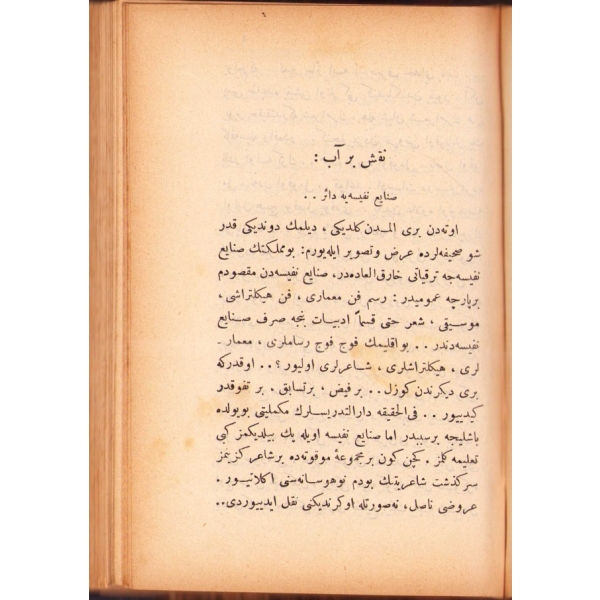 نقش بر آب :
صنایع نفیسه‌یه دائر . .
اوته‌دن بری المدن كلدیكی ، دیلمك دوندیكی قدر
شو صحیفه‌لرده عرض وتصویر ایله‌یورم : بومملكتك صنایع
نفیسه‌جه ترقیاتی خارق‌العاده‌در، صنایع نفیسه‌دن مقصودم
برپارچه عمومیدر : رسم فن معماری ، فن هیكلتراشی ،
موسیقی ، شعر حتی قسماً ادبیات بنجه صرف صنایع
نفیسه‌دندر . . بو اقلیمك فوج فوج رساملری ، معمار ـ
لری ، هیكلتراشلری ، شاعرلری اولیور ؟ . . اوقدركه
بری دیكرندن كوزل . . برفیض ، برتسابق . بر تفوقدر
كیدییور . . فی‌الحقیقه دارالتدریسلرك مكملیتی بویولده
باشلیجه برسببدر اما صنایع نفیسه اویله پك بیلدیكمز كبی
تعلیمه كلمز . كچن كون بر مجموعهٔ موقوته‌ده برشاعر كزیتمز
سركذشت شاعریتنك بودم نوهوسانه‌سنی اكلاتیور .
عروضی ناصل ، نه‌صورتله اوكرندیكنی نقل ایدییوردی . .